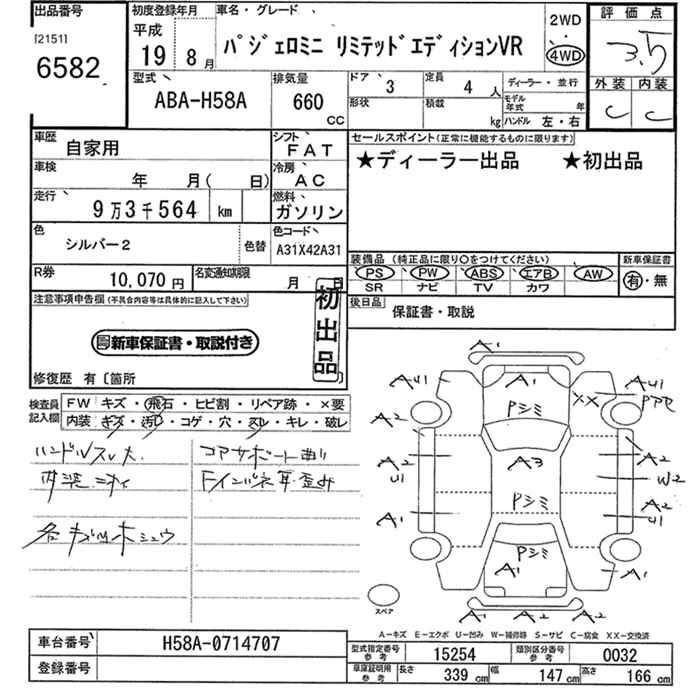 出品番号
[2151]
6582
初度登録年月
平成
19 8月
車名・グレード
パジェロミニ リミテッドエディションVR
2WD
4WD
評価点
3.5
外装 内装
C C
型式
ABA-H58A
排気量
660
CC
ドア 3
定員 4 人
形状
積載 kg
ディーラー・並行
モデル年式 年
ハンドル 左・右
車歴
自家用
シフト
FAT
車検
年 月( 日)
冷房
AC
走行
9万3千564 km
燃料
ガソリン
色
シルバー2
色替
色コード
A31X42A31
R券
10,070円
名変通知期限
月 日
セールスポイント(正常に機能するものに限ります)
★ディーラー出品 ★初出品
装備品(純正品に限り○をつけてください)
PS PW ABS エアB AW
SR ナビ TV カワ
新車保証書
有・無
注意事項申告欄(不具合内容等は具体的に記入して下さい)
新車保証書・取説付き
初出品
後日品
保証書・取説
修復歴 有〔箇所 〕
検査員記入欄
FW キズ・飛石・ヒビ割・リペア跡・×要
内装 キズ・汚レ・コゲ・穴・スレ・キレ・破レ
ハンドルスレ大
内装ニオイ
コアサポート曲り
各キズ凹ホシュウ
A1
A1
AU1
AU1
XX
Pシミ
A2
A3
A2
U1
A2
W2
Pシミ
A1
A2
U1
Pシミ
A1
A1
A1
A2
A2
スペア
A-キズ E-エクボ U-凹み W-補修跡 S-サビ C-腐食 XX-交換済
車台番号
H58A-0714707
登録番号
型式指定番号 参考
15254
類別区分番号 参考
0032
車庫証明用 参考
長さ 339 cm
幅 147 cm
高さ 166 cm